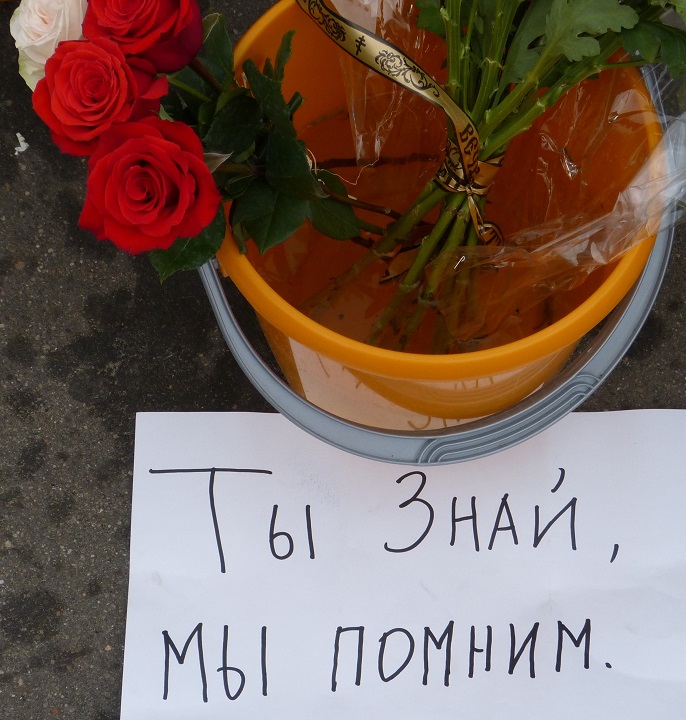 Ты Знай,
мы помним.